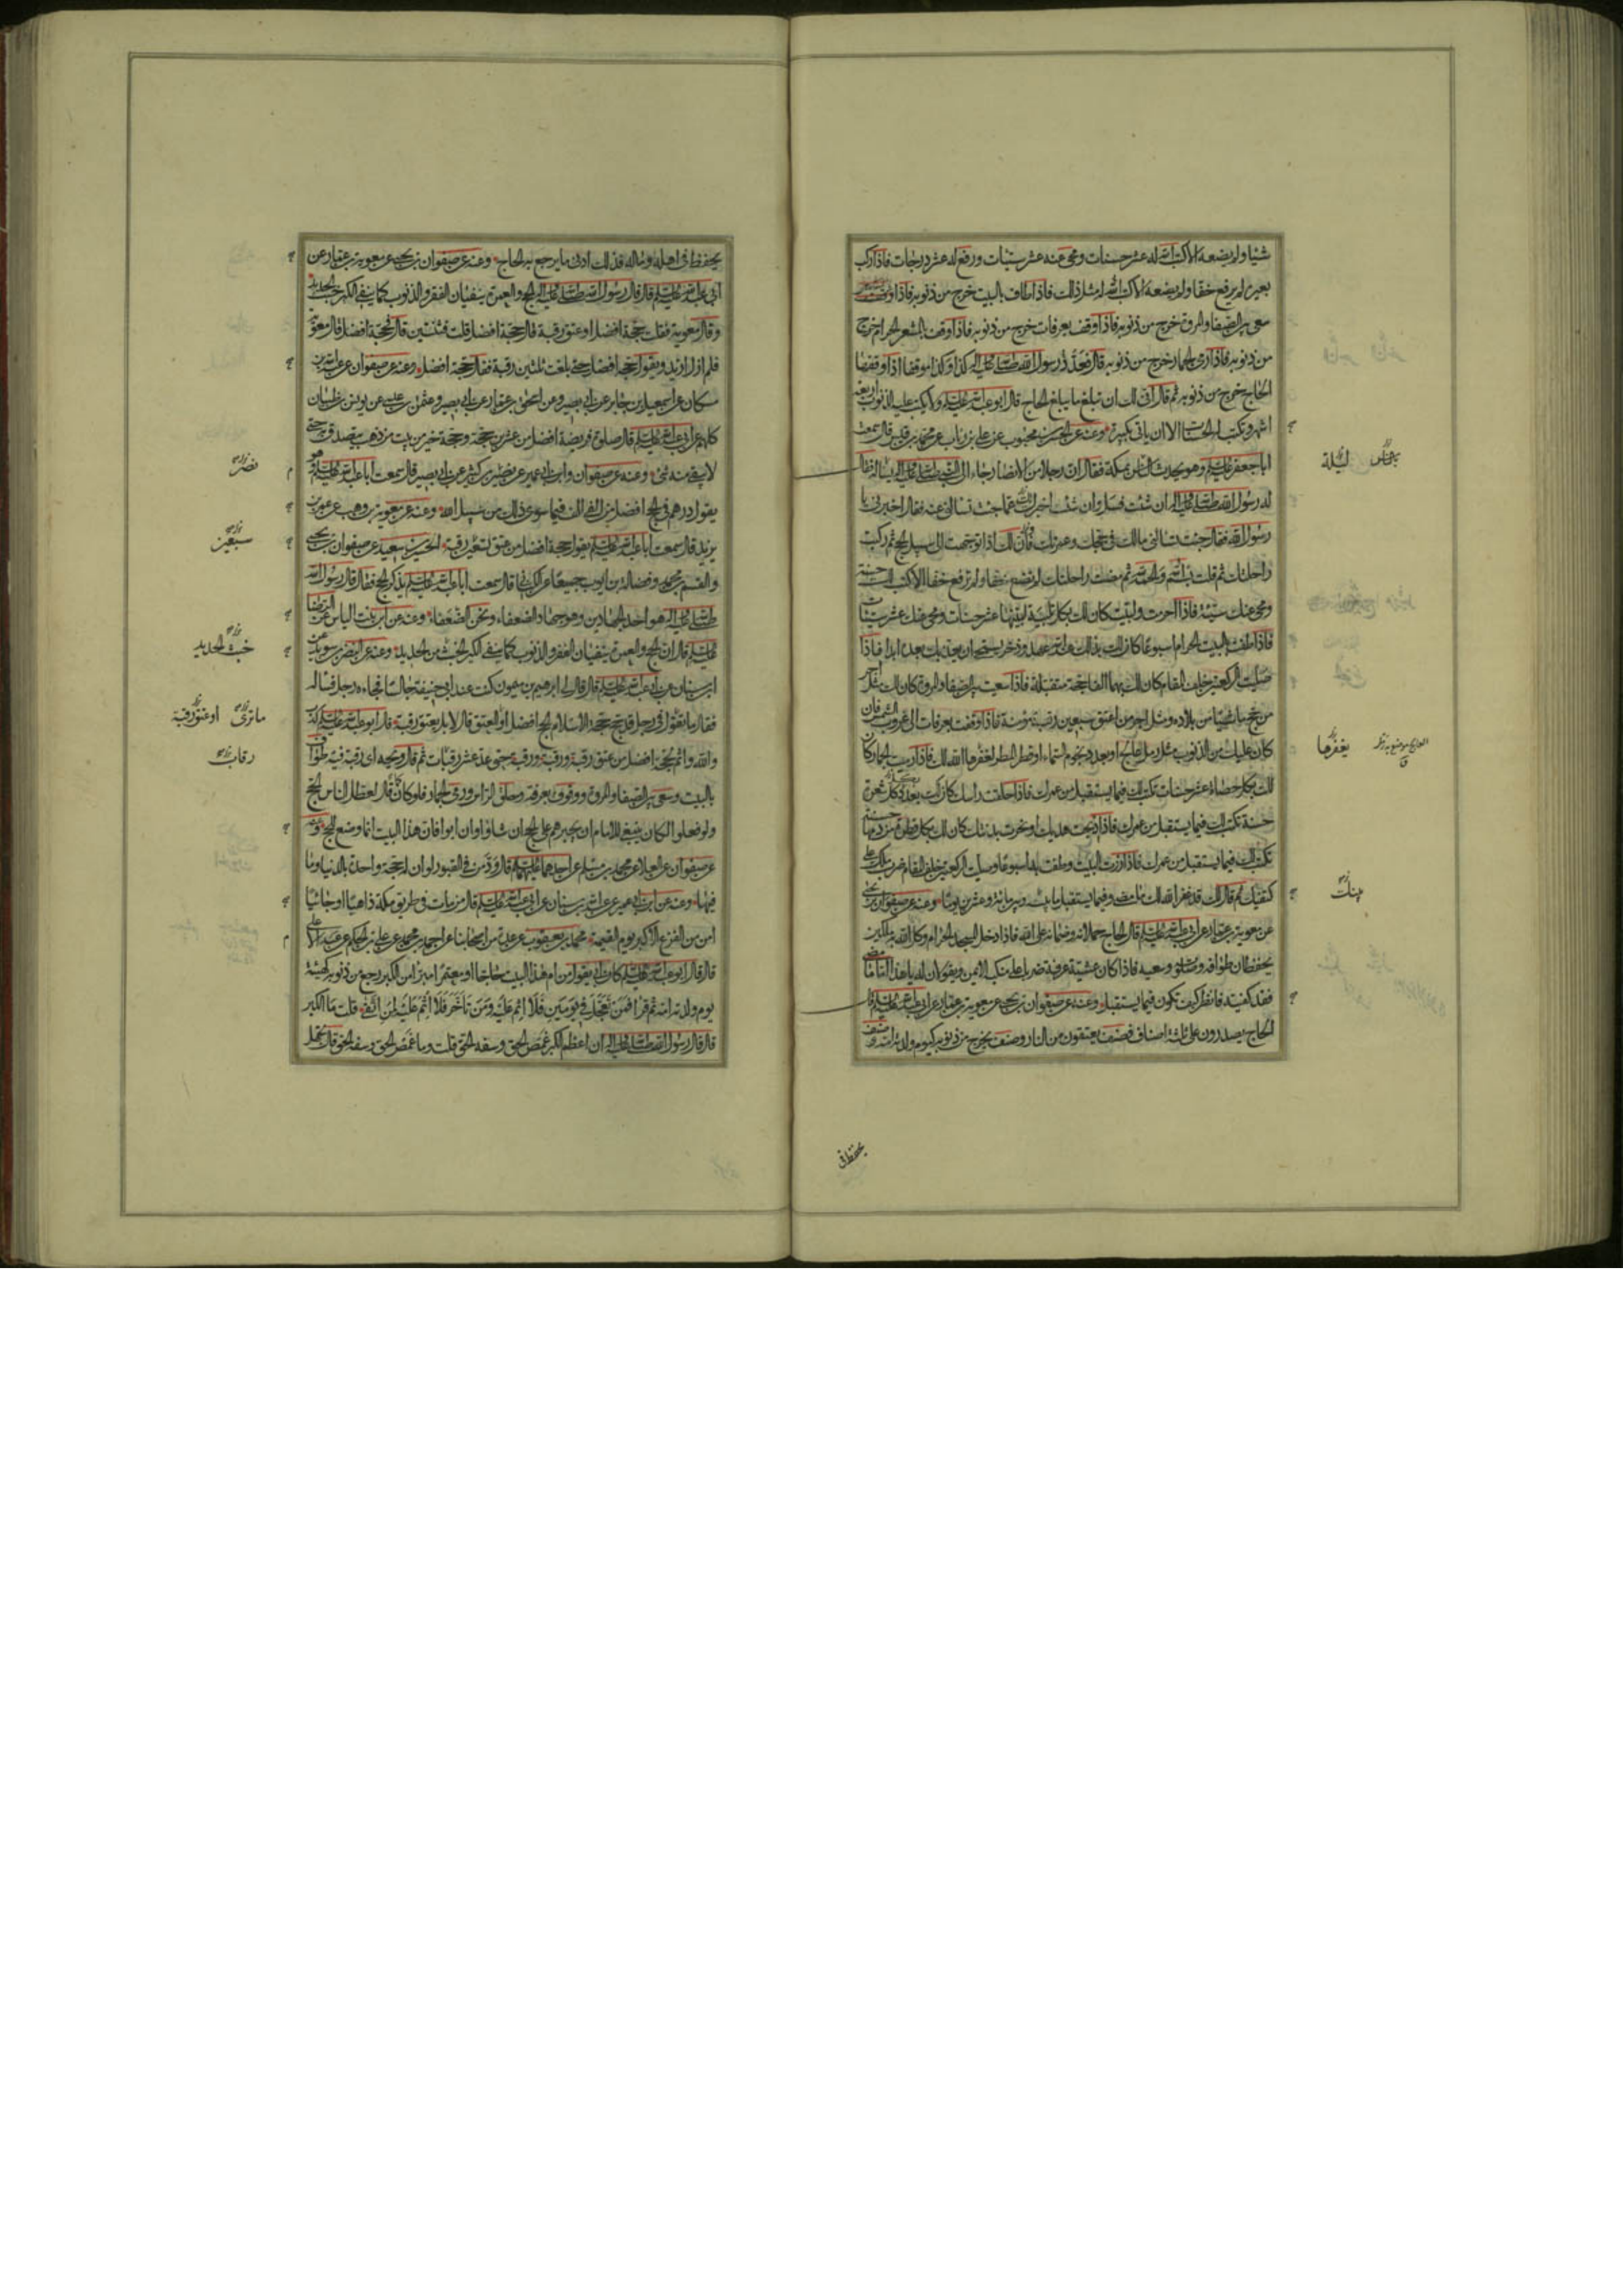 شيئا ولم يضعه الا كتب الله له عشر حسنات ومحى عنه عشر سيئات ورفع له عشر درجات فاذا ركب
بعيره لم يرفع خفا ولم يضعه الا كتب الله له مثل ذلك فاذا طاف بالبيت خرج من ذنوبه فاذا
سعى بين الصفا والمروة خرج من ذنوبه فاذا وقف بعرفات خرج من ذنوبه فاذا وقف بالمشعر الحرام خرج
من ذنوبه فاذا رمى الجمار خرج من ذنوبه قال فعدد رسول الله صلى الله عليه واله كذا وكذا موقفا اذا وقفها
الحاج خرج من ذنوبه ثم قال انى لك ان تبلغ ما يبلغ الحاج قال ابو عبد الله عليه السلم ولا يكتب عليه الذنوب اربعة
اشهر وتكتب له الحسنات الا ان ياتى بكبيرة وعنه عن الحسن بن محبوب عن على بن رئاب عن محمد بن قيس قال سمعت
ابا جعفر عليه السلم وهو يحدث الناس بمكة فقال ان رجلا من الانصار جاء الى النبى صلى الله عليه واله فقال
له رسول الله صلى الله عليه واله ان شئت فسل وان شئت اخبرتك عما جئت تسالنى عنه فقال اخبرنى يا
رسول الله فقال جئت تسالنى مالك فى حجك وعمرتك فان لك اذا توجهت الى سبيل الحج ثم ركبت
راحلتك ثم قلت بسم الله والحمد لله ثم مضت راحلتك لم تضع خفا ولم ترفع خفا الا كتب لك حسنة
ومحى عنك سيئة فاذا احرمت ولبيت كان لك بكل تلبية لبيتها عشر حسنات ومحى عنك عشر سيئات
فاذا طفت بالبيت الحرام اسبوعا كان لك بذلك عند الله عهد وذخر يستحيى ان يعذبك بعده ابدا فاذا
صليت الركعتين خلف المقام كان لك بهما الفا حجة متقبلة فاذا سعيت بين الصفا والمروة كان لك مثل اجر
من حج ماشيا من بلاده ومثل اجر من اعتق سبعين رقبة مؤمنة فاذا وقفت بعرفات الى غروب الشمس فان
كان عليك من الذنوب مثل رمل عالج او بعدد نجوم السماء او قطر المطر لغفرها الله لك فاذا رميت الجمار كان
لك بكل حصاة عشر حسنات تكتب لك فيما يستقبل من عمرك فاذا حلقت راسك كان لك بعدد كل شعرة
حسنة تكتب لك فيما يستقبل من عمرك فاذا ذبحت هديك او نحرت بدنتك كان لك بكل قطرة من دمها حسنة
تكتب لك فيما يستقبل من عمرك فاذا زرت البيت وطفت به اسبوعا وصليت الركعتين خلف المقام ضرب ملك على
كتفيك ثم قال لك قد غفر الله لك ما مضى وفيما يستقبل ما بينك وبين مائة وعشرين يوما وعنه عن صفوان بن يحيى
عن معوية بن عمار عن ابى عبد الله عليه السلم قال الحاج حملانه وضمانه على الله فاذا دخل المسجد الحرام وكل الله به ملكين
يحفظان طوافه وصلوته وسعيه فاذا كان عشية عرفة ضربا على منكبه الايمن ويقولان له يا هذا اما ما مضى
فقد كفيته فانظر كيف تكون فيما يستقبل وعنه عن صفوان بن يحيى عن معوية بن عمار عن ابى عبد الله عليه السلم قال
الحاج يصدرون على ثلثة اصناف فصنف يعتقون من النار وصنف يخرج من ذنوبه كيوم ولدته امه وصنف
بالناس
ليلة
يغفرها
بينك
يحفظ فى
يحفظ فى اهله وماله فذلك ادنى ما يرجع به الحاج وعنه عن صفوان بن يحيى عن معوية بن عمار عن
ابى عبد الله عليه السلم قال قال رسول الله صلى الله عليه واله الحج والعمرة ينفيان الفقر والذنوب كما ينفى الكير خبث الحديد
وقال معوية فقلت حجة افضل او عتق رقبة قال حجة افضل قلت فثنتين قال فحجة افضل قال معوية
فلم ازل ازيد ويقول حجة افضل حتى بلغت ثلثين رقبة فقال حجة افضل وعنه عن صفوان عن عبد الله بن
مسكان عن اسمعيل بن جابر عن ابى بصير وعن اسحق بن عمار عن ابى بصير وعثمن بن عيسى عن يونس بن ظبيان
كلهم عن ابى عبد الله عليه السلم قال صلوة فريضة افضل من عشرين حجة وحجة خير من بيت من ذهب يتصدق به حتى
لا يبقى منه شئ وعنه عن صفوان وابن ابى عمير عن نصير بن كثير عن ابى بصير قال سمعت ابا عبد الله عليه السلم
يقول درهم فى الحج افضل من الفى الف فيما سوى ذلك من سبيل الله وعنه عن معوية بن وهب عن عمر بن
يزيد قال سمعت ابا عبد الله عليه السلم يقول حجة افضل من عتق تسعين رقبة الحسين بن سعيد عن صفوان بن يحيى
والقسم بن محمد وفضالة بن ايوب جميعا عن الكنانى قال سمعت ابا عبد الله عليه السلم يذكر الحج فقال قال رسول الله
صلى الله عليه واله هو احد الجهادين وهو جهاد الضعفاء ونحن الضعفاء وعنه عن ابن بنت الياس عن الرضا
عليه السلم قال ان الحج والعمرة ينفيان الفقر والذنوب كما ينفى الكير الخبث من الحديد وعنه عن النضر بن سويد عن
ابن سنان عن ابى عبد الله عليه السلم قال قال لى ابرهيم بن ميمون كنت عند ابى حنيفة جالسا فجاءه رجل فساله
فقال ما تقول فى رجل قد حج حجة الاسلام الحج افضل او العتق قال لا بل يعتق رقبة قال ابو عبد الله عليه السلم كذب
والله واثم لحجة افضل من عتق رقبة ورقبة ورقبة حتى عد عشر رقبات ثم قال ويحه اى رقبة فيه طواف
بالبيت وسعى بين الصفا والمروة ووقوف بعرفة وحلق الراس ورمى الجمار فلو كان كما قال لعطل الناس الحج
ولو فعلوا لكان ينبغى للامام ان يجبرهم على الحج ان شاؤا وان ابوا فان هذا البيت انما وضع للحج وعنه
عن صفوان عن العلاء عن محمد بن مسلم عن احدهما عليهما السلم قال ود من فى القبور لو ان له حجة واحدة بالدنيا وما
فيها وعنه عن ابن ابى عمير عن عبد الله بن سنان عن ابى عبد الله عليه السلم قال من مات فى طريق مكة ذاهبا او جائيا
امن من الفزع الاكبر يوم القيمة محمد بن يعقوب عن عدة من اصحابنا عن احمد بن محمد عن على بن الحكم عن عبد الاعلى
قال قال ابو عبد الله عليه السلم كان ابى يقول من ام هذا البيت حاجا او معتمرا مبرأ من الكبر رجع من ذنوبه كهيئة
يوم ولدته امه ثم قرأ فَمَنْ تَعَجَّلَ فِى يَوْمَيْنِ فَلَا اِثْمَ عَلَيْهِ وَمَنْ تَاَخَّرَ فَلَا اِثْمَ عَلَيْهِ لِمَنِ اتَّقَى قلت ما الكبر
قال قال رسول الله صلى الله عليه واله ان اعظم الكبر غمص الخلق وسفه الحق قلت وما غمص الخلق وسفه الحق قال يجهل
نضر
سبعين
خبث الحديد
ما ترى
او عتق رقبة
رقاب